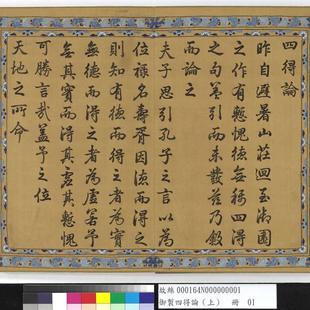 四得論
昨自避暑山莊回至御園
之作有慙愧德無稱四得
之句第引而未發茲乃叙
而論之
夫子思引孔子之言以為
位祿名壽胥因德而得之
則知有德而得之者為實
無德而得之者為虛若予
無其實而得其虛其慙愧
可勝言哉蓋予之位
天地之所命
故絲000164N000000001
御製四得論(上) 冊 01